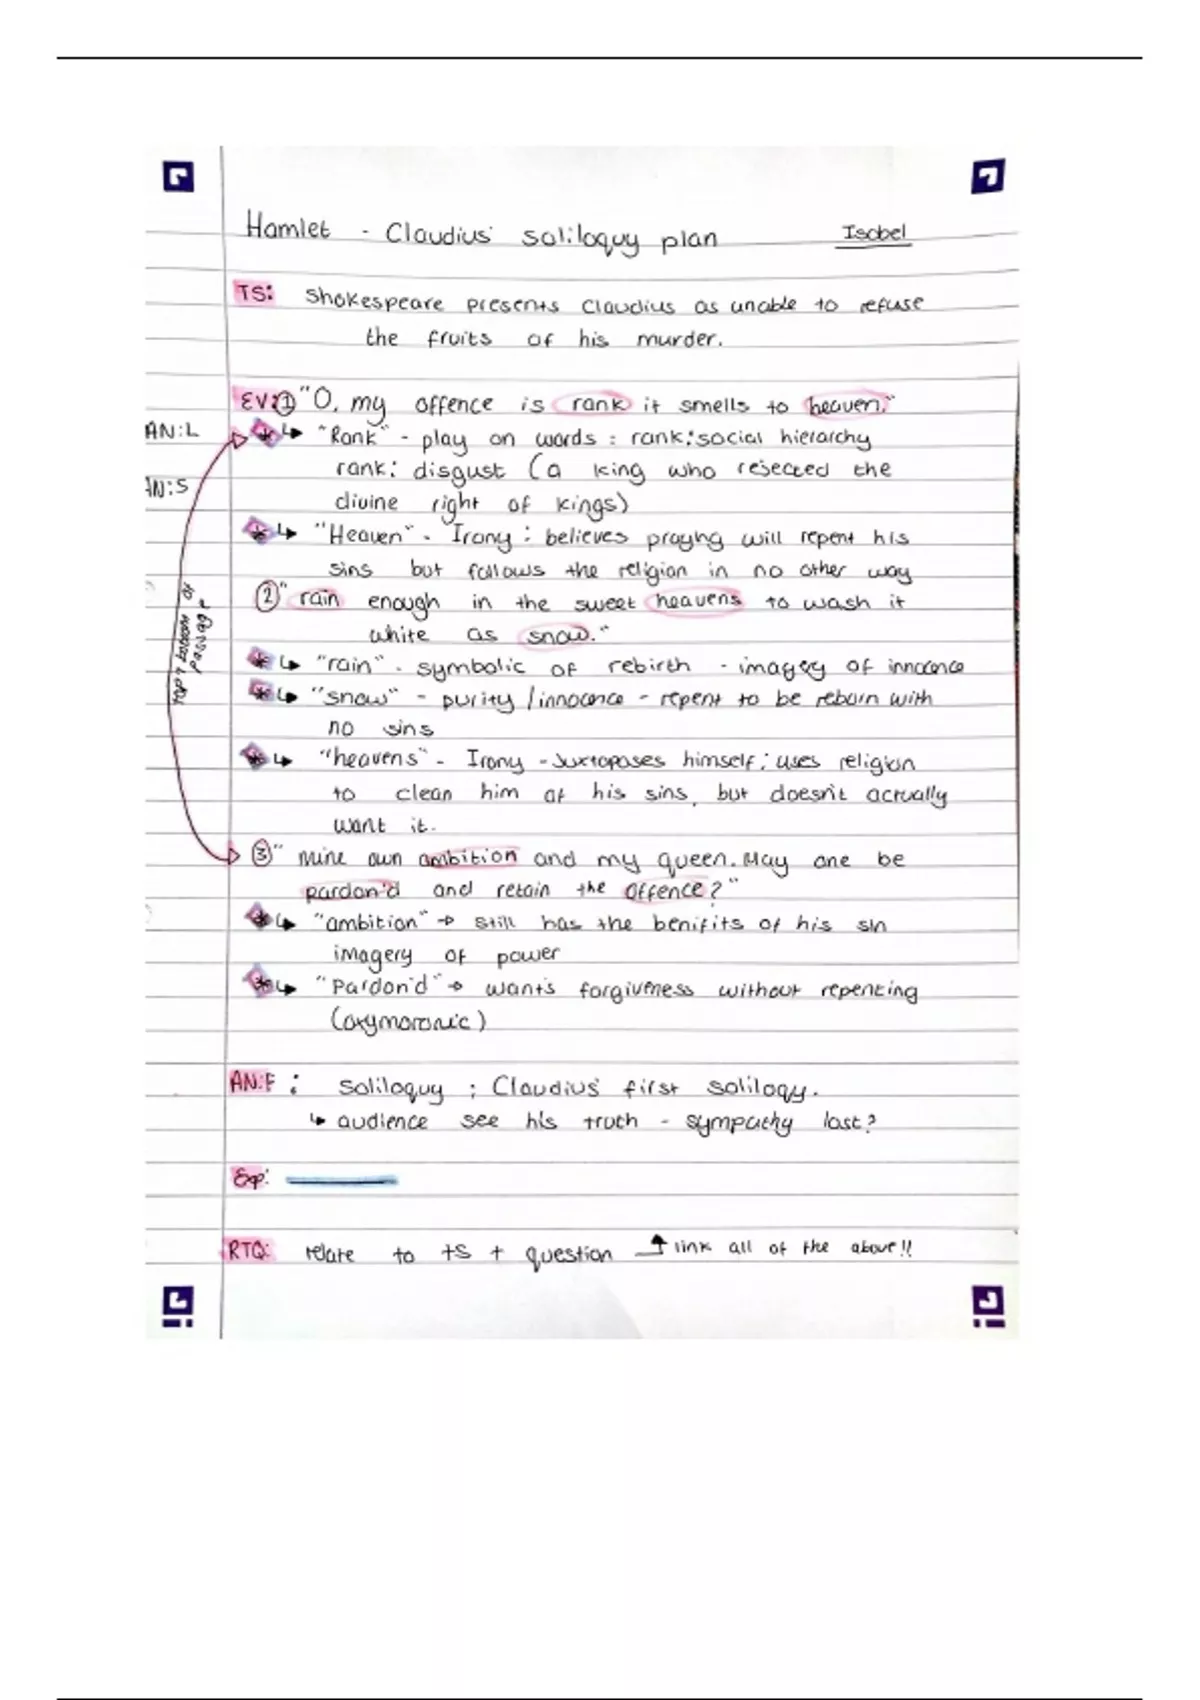 Hamlet - Claudius' soliloquy plan
Isobel
TS: Shakespeare presents Claudius as unable to refuse
the fruits of his murder.
EV: ① "O, my offence is rank it smells to heaven."
AN:L
AN:S
* ↳ "Rank" - play on words : rank: social hierarchy
rank: disgust (a king who rejected the
divine right of kings)
* ↳ "Heaven" - Irony : believes praying will repent his
sins but follows the religion in no other way
② "rain enough in the sweet heavens to wash it
white as snow."
* ↳ "rain" - symbolic of rebirth - imagery of innocence
* ↳ "snow" - purity / innocence - repent to be reborn with
no sins
* ↳ "heavens" - Irony - Juxtaposes himself; uses religion
to clean him of his sins, but doesn't actually
want it.
③ "mine own ambition and my queen. May one be
pardon'd and retain the offence?"
* ↳ "ambition" → still has the benifits of his sin
imagery of power
* ↳ "Pardon'd" → wants forgiveness without repenting
(oxymoronic)
AN:F : Soliloquy ; Claudius' first soliloqy.
↳ audience see his truth - sympathy lost?
Exp:
RTQ: relate to TS + question ↑ link all of the above!!
passage